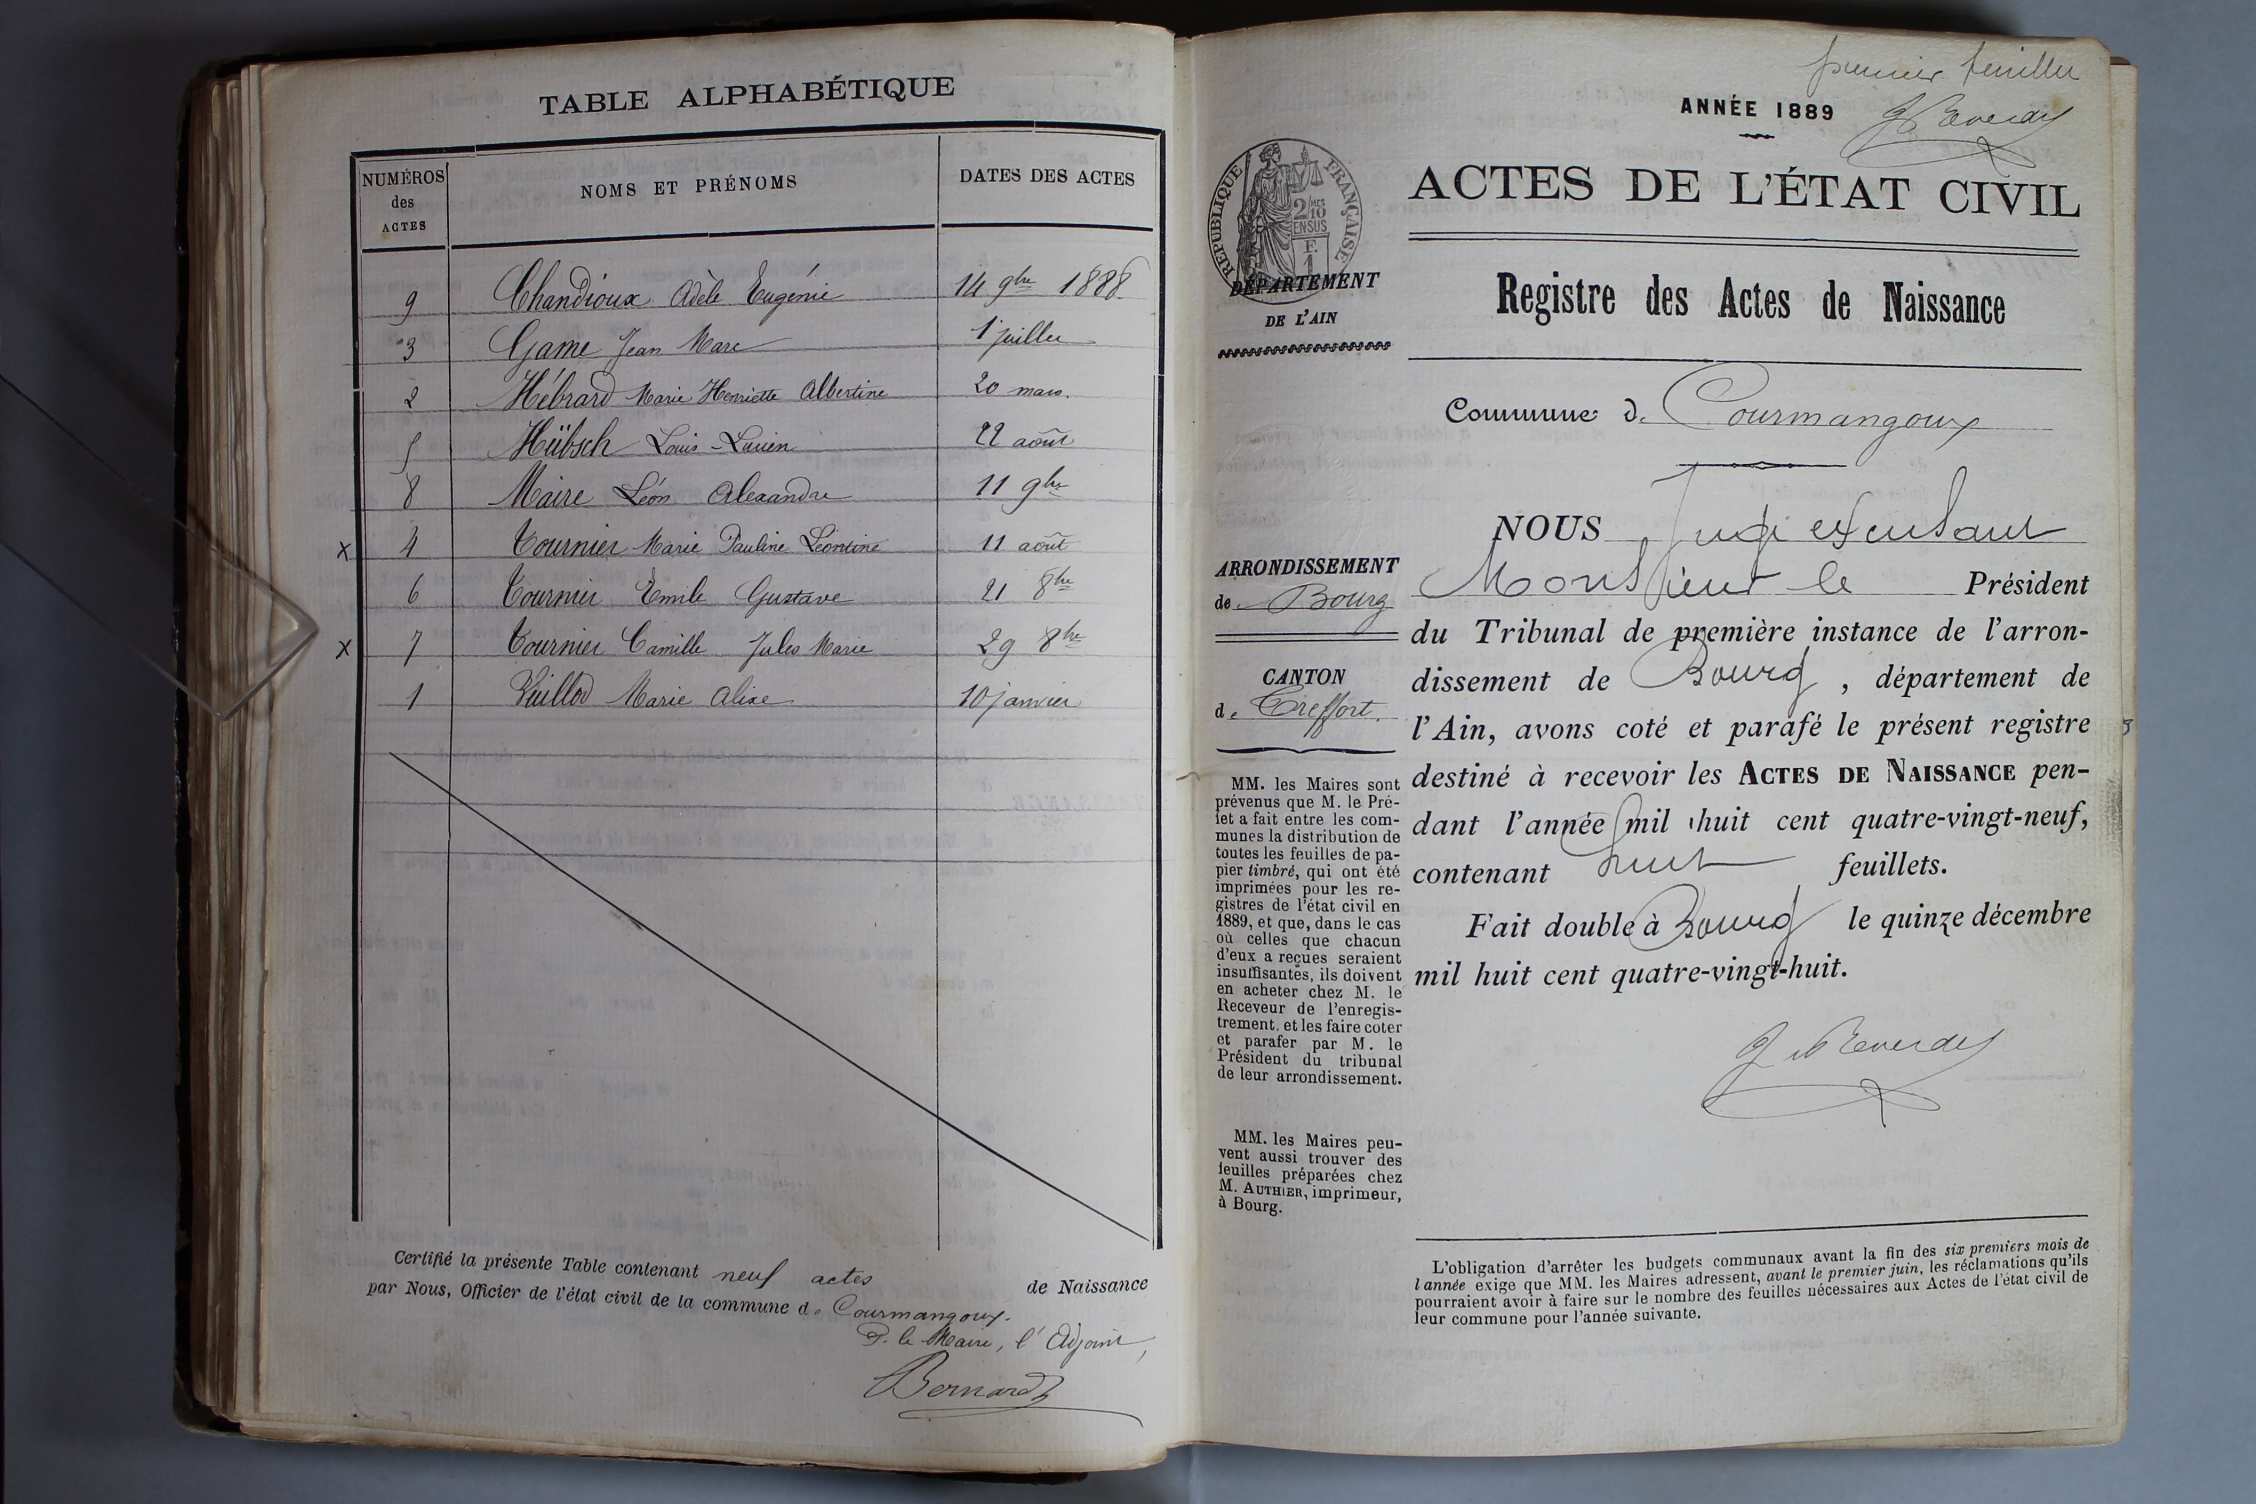 TABLE ALPHABÉTIQUE
NUMÉROS des ACTES NOMS ET PRÉNOMS DATES DES ACTES
9 Chandioux Adèle Eugénie 14 9bre 1888
3 Game Jean Marc 1 juillet
2 Hébrard Marie Henriette Albertine 20 mars.
5 Hübsch Louis-Lucien 22 août
8 Maire Léon Alexandre 11 9bre
x 4 Tournier Marie Pauline Léontine 11 août
6 Tournier Emile Gustave 21 8bre
x 7 Tournier Camille Jules Marie 29 8bre
1 Vuillod Marie Alixe 10 janvier
Certifié la présente Table contenant neuf actes de Naissance
par Nous, Officier de l'état civil de la commune de Courmangoux.
P. le Maire, l'Adjoint,
Bernard
premier feuillet
ANNÉE 1889
ACTES DE L'ÉTAT CIVIL
RÉPUBLIQUE FRANÇAISE
2 10MES EN SUS
F.
1
DÉPARTEMENT
DE L'AIN
Registre des Actes de Naissance
Commune de Courmangoux
ARRONDISSEMENT
de Bourg
CANTON
de Treffort.
MM. les Maires sont
prévenus que M. le Pré-
fet a fait entre les com-
munes la distribution de
toutes les feuilles de pa-
pier timbré, qui ont été
imprimées pour les re-
gistres de l'état civil en
1889, et que, dans le cas
où celles que chacun
d'eux a reçues seraient
insuffisantes, ils doivent
en acheter chez M. le
Receveur de l'enregis-
trement, et les faire coter
et parafer par M. le
Président du tribunal
de leur arrondissement.
MM. les Maires peu-
vent aussi trouver des
feuilles préparées chez
M. AUTHIER, imprimeur,
à Bourg.
NOUS Juge
Monsieur le Président
du Tribunal de première instance de l'arron-
dissement de Bourg, département de
l'Ain, avons coté et parafé le présent registre
destiné à recevoir les ACTES DE NAISSANCE pen-
dant l'année mil huit cent quatre-vingt-neuf,
contenant huit feuillets.
Fait double à Bourg le quinze décembre
mil huit cent quatre-vingt-huit.
L'obligation d'arrêter les budgets communaux avant la fin des six premiers mois de
l'année exige que MM. les Maires adressent, avant le premier juin, les réclamations qu'ils
pourraient avoir à faire sur le nombre des feuilles nécessaires aux Actes de l'état civil de
leur commune pour l'année suivante.